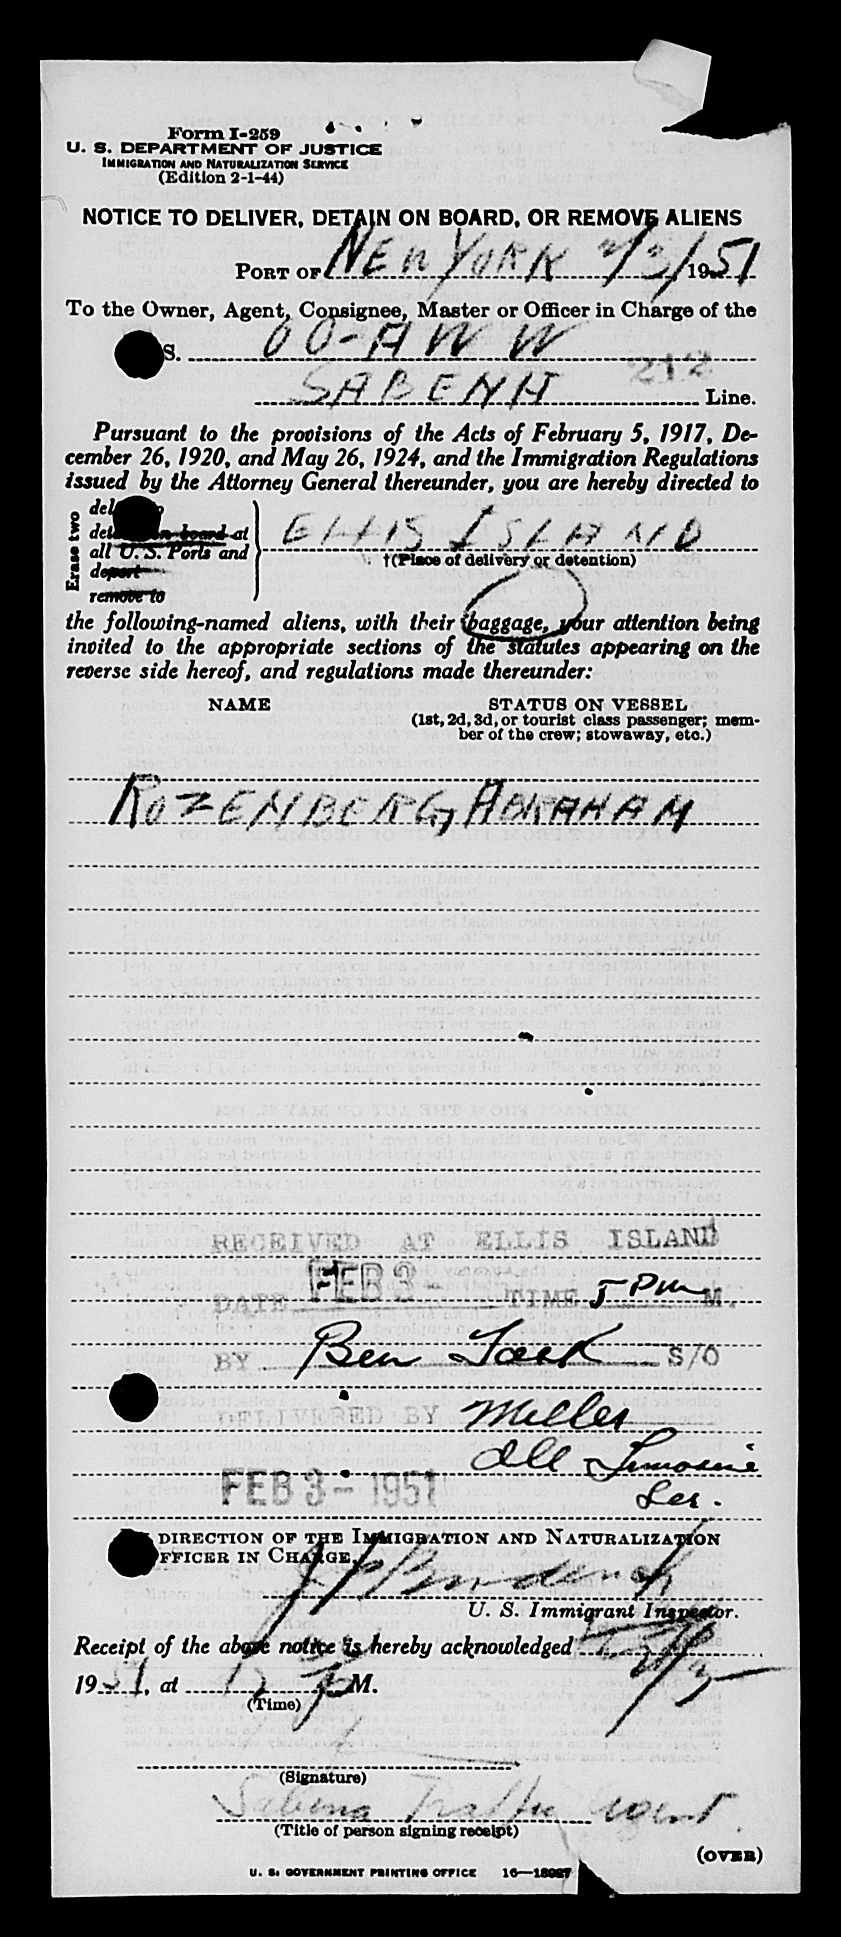 Form I-259
U. S. DEPARTMENT OF JUSTICE
IMMIGRATION AND NATURALIZATION SERVICE
(Edition 2-1-44)
NOTICE TO DELIVER, DETAIN ON BOARD, OR REMOVE ALIENS
PORT OF NEW YORK 2/3/1951
To the Owner, Agent, Consignee, Master or Officer in Charge of the
S. OO-AWW
SABENA 212 Line.
Pursuant to the provisions of the Acts of February 5, 1917, De-
cember 26, 1920, and May 26, 1924, and the Immigration Regulations
issued by the Attorney General thereunder, you are hereby directed to
Erase two
on board at
all U. S. Ports and
depart
remove to
ELLIS ISLAND
†(Place of delivery or detention)
the following-named aliens, with their baggage, your attention being
invited to the appropriate sections of the statutes appearing on the
reverse side hereof, and regulations made thereunder:
NAME STATUS ON VESSEL
(1st, 2d, 3d, or tourist class passenger; mem-
ber of the crew; stowaway, etc.)
ROZENBERG, ABRAHAM
RECEIVED AT ELLIS ISLAND
DATE FEB 3- TIME 5 PM M.
BY Ben S/O
DELIVERED BY Miller
FEB 3- 1951
DIRECTION OF THE IMMIGRATION AND NATURALIZATION
OFFICER IN CHARGE.
U. S. Immigrant Inspector.
Receipt of the above notice is hereby acknowledged 2/3
1951, at M.
(Time)
(Signature)
Sabena Traffic Agent.
(Title of person signing receipt)
(OVER)
U. S. GOVERNMENT PRINTING OFFICE